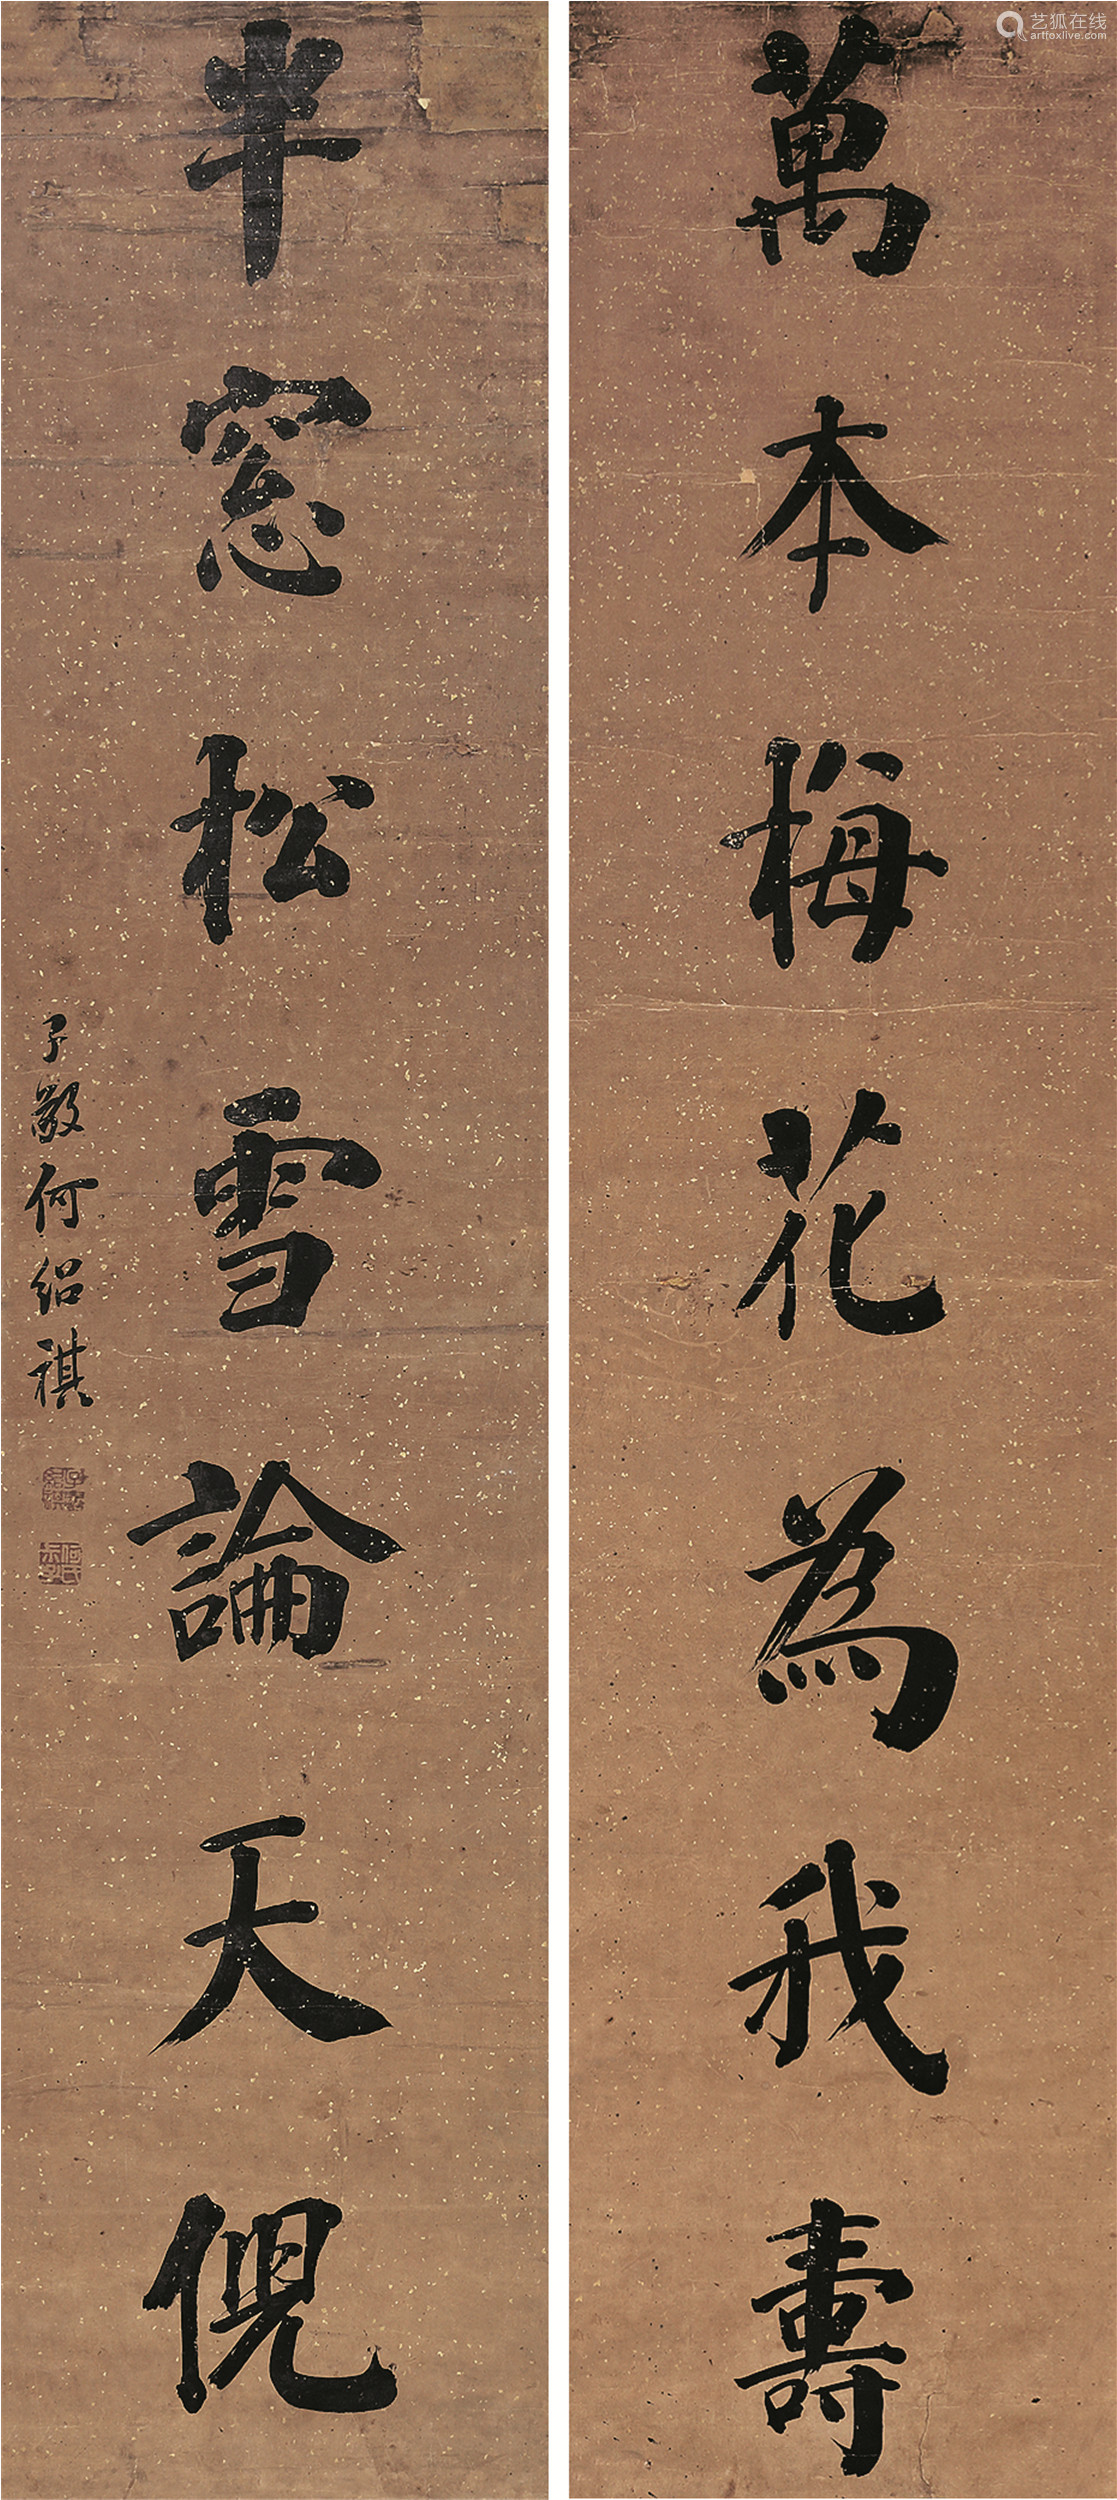 萬本梅花為我壽
半窓松雪論天倪
子敬何绍祺
艺狐在线
artfoxlive.com